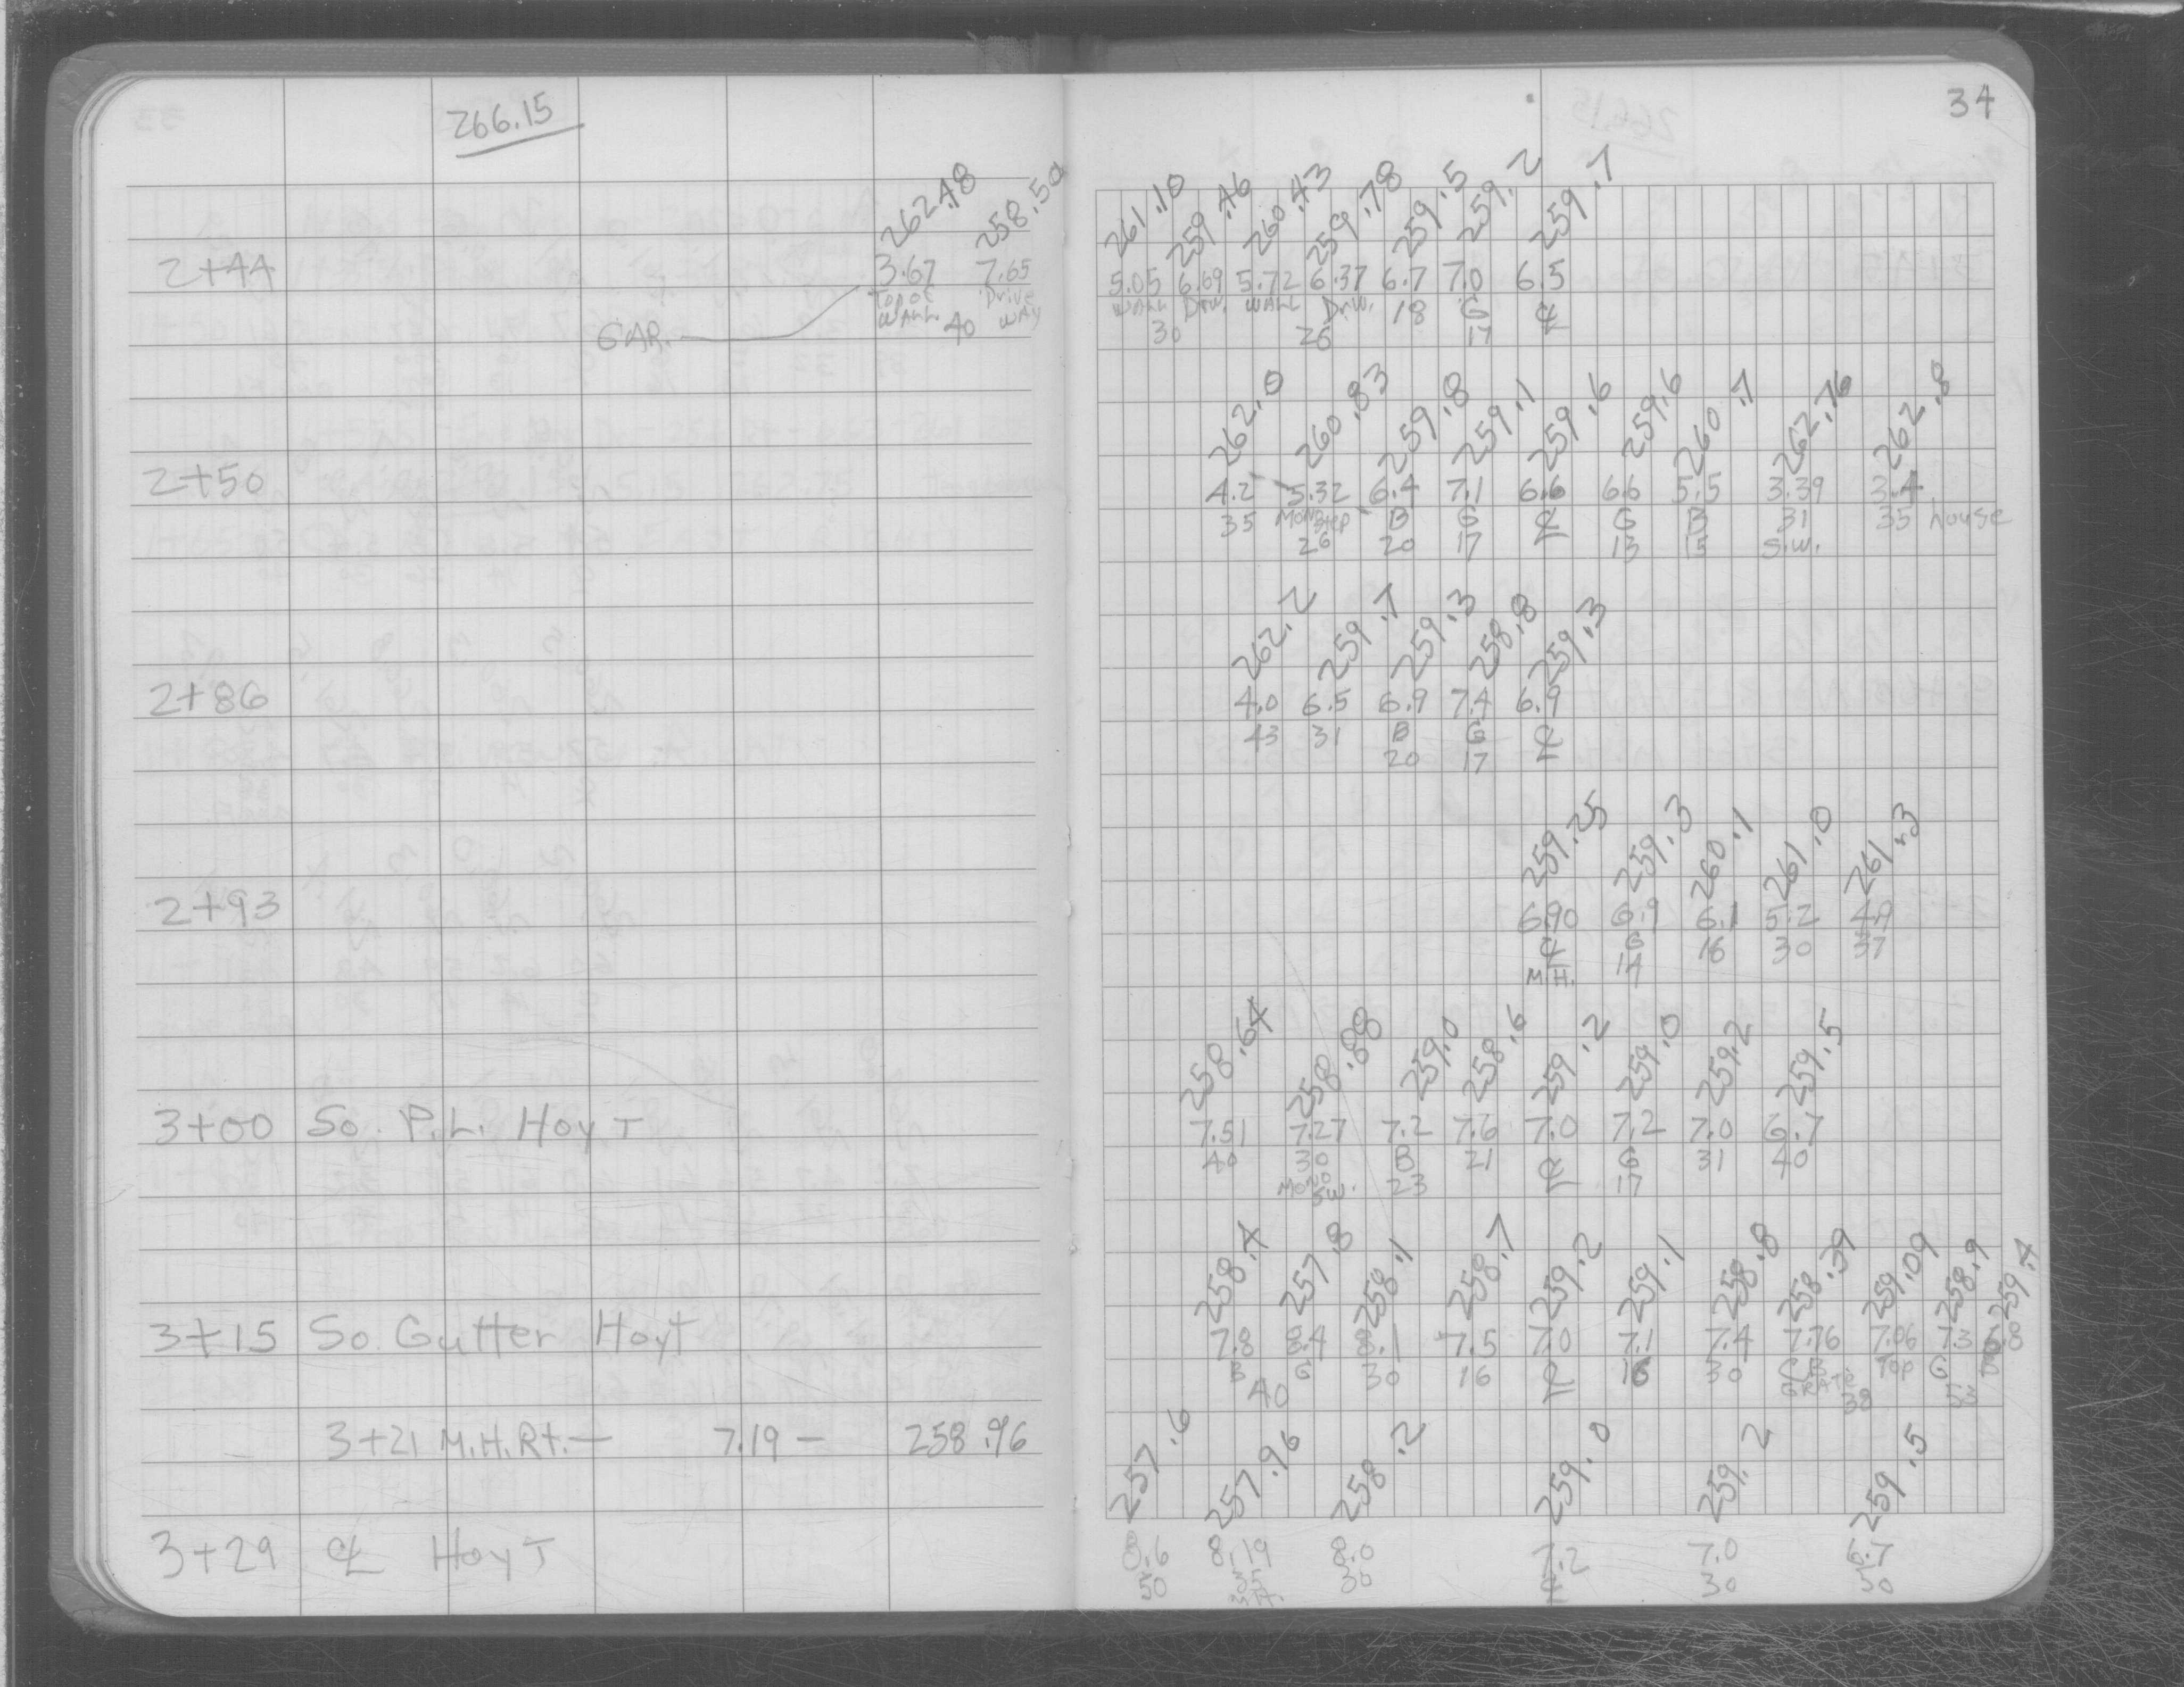 266.15
34
262.48 258.50 261.10 259.46 260.43 259.78 259.5 259.2 259.7
2+44 3.67 7.65 5.05 6.69 5.72 6.37 6.7 7.0 6.5
Top of Drive WALL Driv. WALL Driv. 18 G ℄
WALL 40 WAY 30 26 17
GAR.
262.0 260.83 259.8 259.1 259.6 259.6 260.7 262.76 262.8
2+50 4.2 5.32 6.4 7.1 6.6 6.6 5.5 3.39 3.4
35 Mon Step B G ℄ G B 31 35 house
26 20 17 13 15 S.W.
262.2 259.7 259.3 258.8 259.3
2+86 4.0 6.5 6.9 7.4 6.9
43 31 B G ℄
20 17
259.25 259.3 260.1 261.0 261.3
2+93 6.90 6.9 6.1 5.2 4.9
℄ G 16 30 37
M.H. 14
258.64 258.88 259.0 258.6 259.2 259.0 259.2 259.5
3+00 So. P.L. Hoyt 7.51 7.27 7.2 7.6 7.0 7.2 7.0 6.7
40 30 B 21 ℄ G 31 40
Mono S.W. 23 17
258.4 257.8 258.1 258.7 259.2 259.1 258.8 258.39 259.09 258.9 259.4
3+15 So. Gutter Hoyt 7.8 8.4 8.1 7.5 7.0 7.1 7.4 7.76 7.06 7.3 6.8
B G 30 16 ℄ 16 30 C.B. Top G B
40 GRATE 38 53
3+21 M.H. Rt. — 7.19 — 258.96
257.6 257.96 258.2 259.0 259.2 259.5
3+29 ℄ Hoyt 8.6 8.19 8.0 7.2 7.0 6.7
50 30 ℄ 30 50